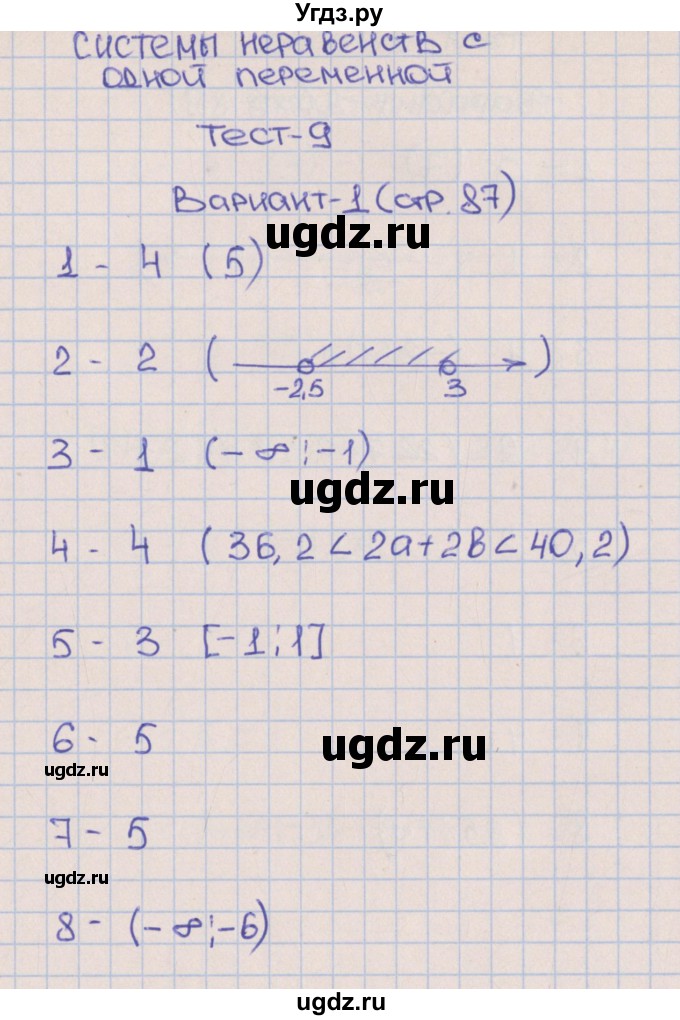 Угдз.ру
Системы неравенств с
одной переменной
Тест-9
Вариант-1 (стр. 87)
ugdz.ru
1 - 4 (5)
2 - 2 ( -2,5 3 )
3 - 1 (-∞; -1)
ugdz.ru
4 - 4 (36,2 < 2а+2в < 40,2)
5 - 3 [-1; 1]
6 - 5
ugdz.ru
ugdz.ru
7 - 5
ugdz.ru
8 - (-∞; -6)
ugdz.ru